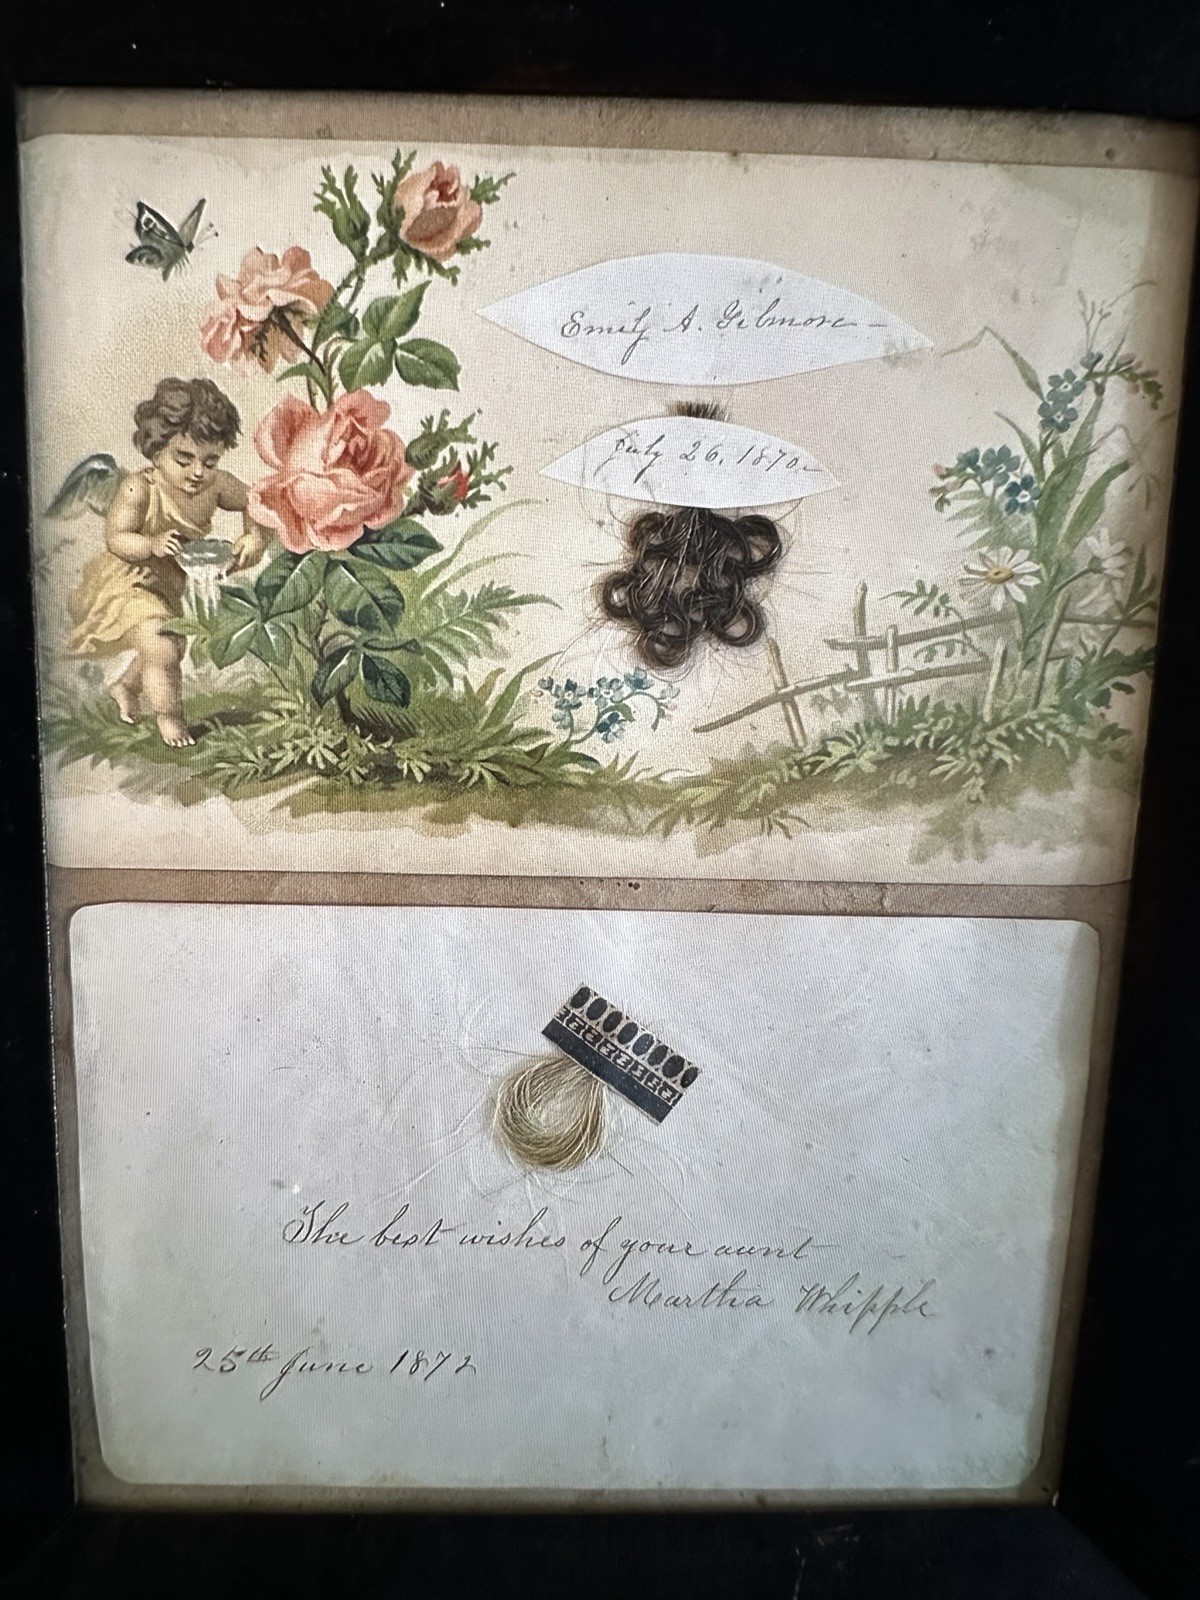 Emily A. Gilmore -
July 26, 1870.
The best wishes of your aunt
Martha Whipple
25th June 1872